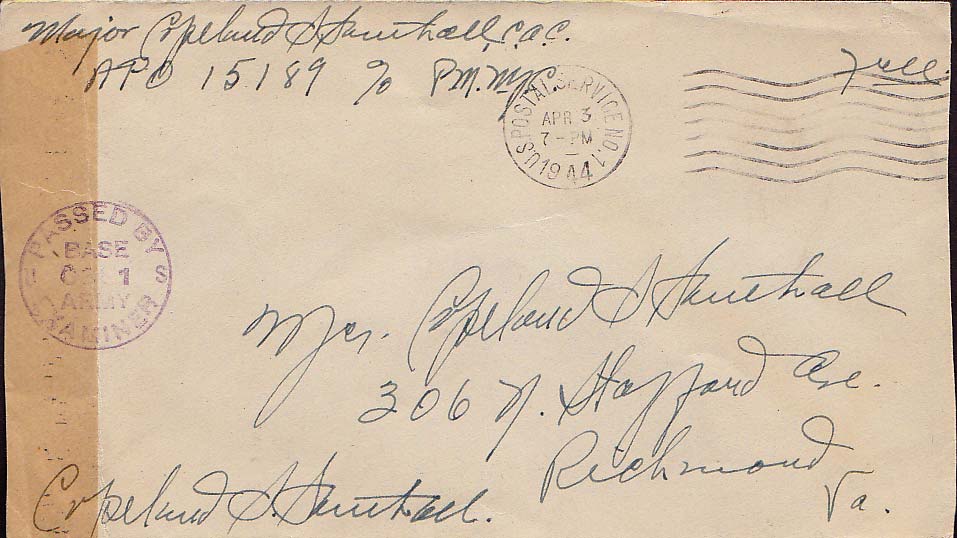 Major Copeland S Southall, C.A.C.
APO 15189 % P.M. NYC.
Free.
U.S. POSTAL SERVICE NO. 1.
APR 3
7 - PM
1944
PASSED BY
BASE
1
ARMY
EXAMINER
U S
Mrs. Copeland S Southall
306 N. Stafford Ave.
Richmond
Va.
Copeland S. Southall.